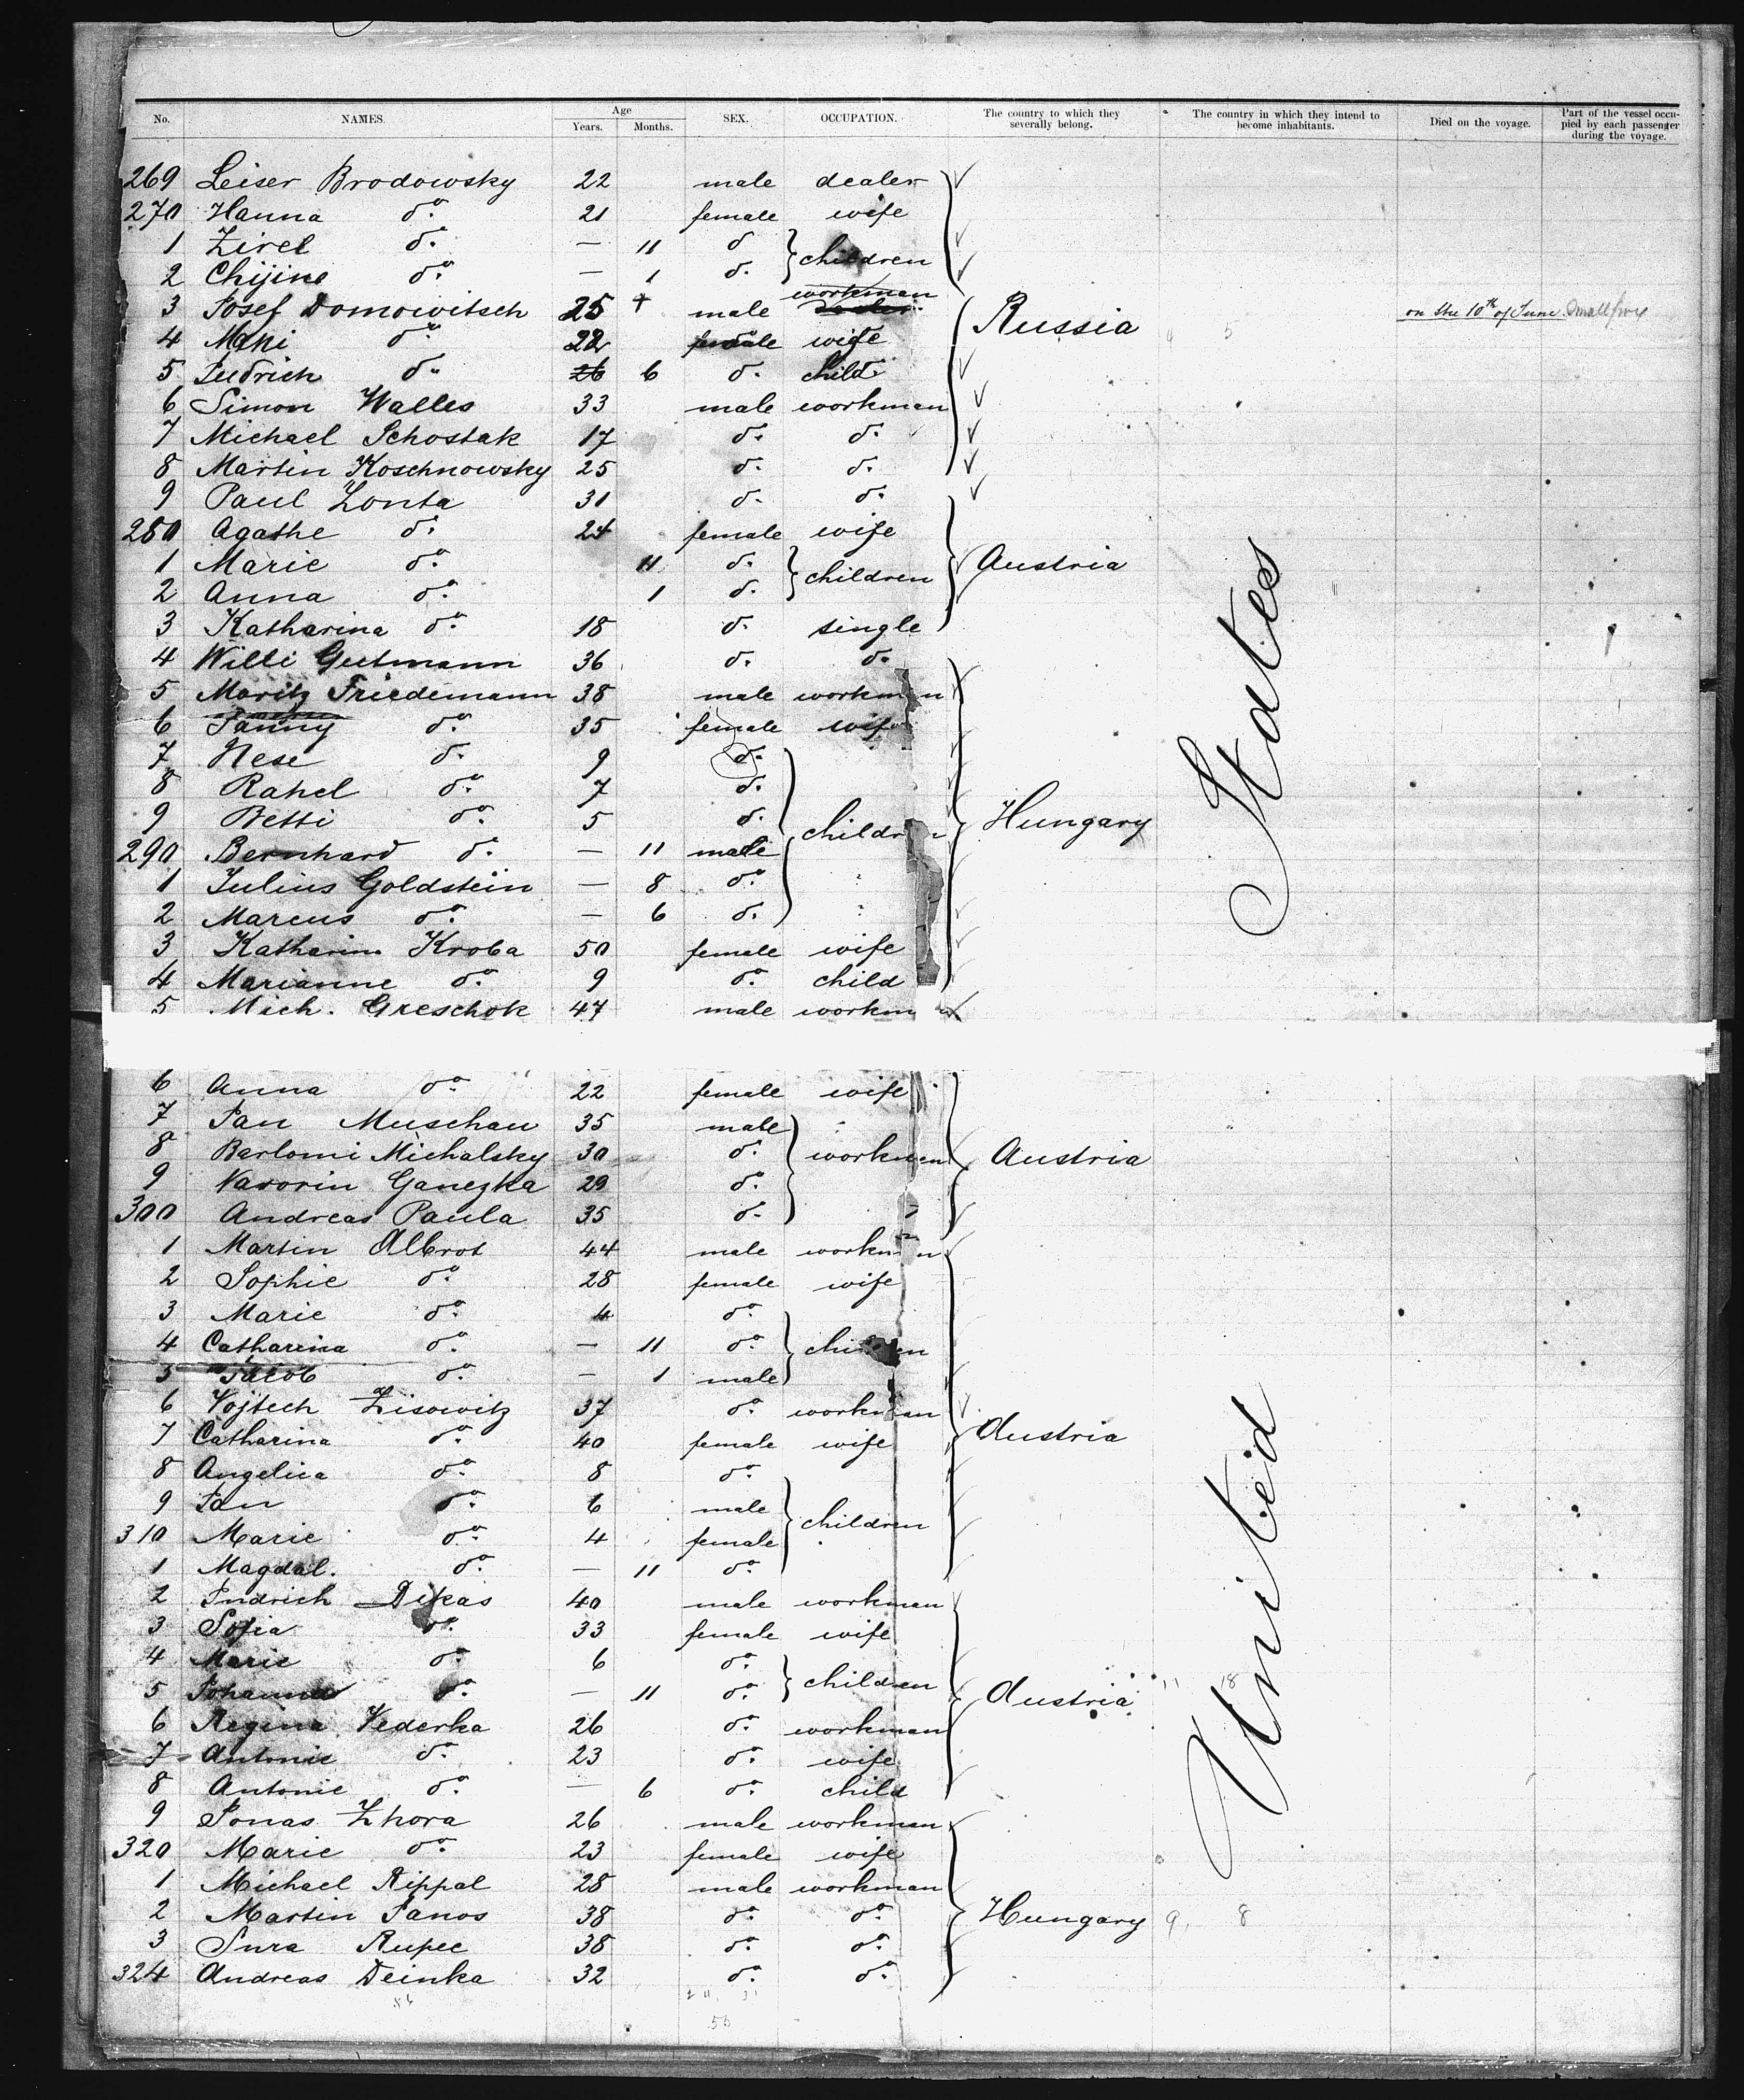 No. NAMES. Age Years. Months. SEX. OCCUPATION. The country to which they severally belong. The country in which they intend to become inhabitants. Died on the voyage. Part of the vessel occupied by each passenger during the voyage.
269 Leiser Brodowsky 22 male dealer
270 Hanna do. 21 female wife
1 Zirel do. — 11 do children
2 Chijine do. — 1 do.
3 Josef Domowitsch 25 + male workman on the 10th of June Smallpox
4 do. 22 female wife Russia 5
5 do. 26 6 do. child
6 Simon Walles 33 male workman
7 Michael Schostak 17 do. do.
8 Martin Koschnowsky 25 do. do.
9 Paul Lonta 31 do. do.
280 Agathe do. 24 female wife
1 Marie do. 11 do. children Austria
2 Anna do. 1 do.
3 Katharina do. 18 do. single
4 Willi Gutmann 36 do. do.
5 Moritz Friedemann 38 male workman
6 Fanny do. 35 female wife
7 Nese do. 9 do.
8 Rahel do. 7 do.
9 Betti do. 5 do. children Hungary
290 Bernhard do. — 11 male
1 Julius Goldstein — 8 do.
2 Marcus do. — 6 do.
3 Katharina Kroba 50 female wife
4 Marianne do. 9 do. child
5 Mich. Greschok 47 male workman
6 Anna do. 22 female wife
7 Jan Muschau 35 male
8 Barlomi Michalsky 30 do. workmen Austria
9 Ganezka 29 do.
300 Andreas Paula 35 do.
1 Martin Albrot 44 male workman
2 Sophie do. 28 female wife
3 Marie do. 4 do.
4 Catharina do. — 11 do. children
5 Jacob do. — 1 male
6 Vojtech Zisowitz 37 do. workman
7 Catharina do. 40 female wife Austria
8 Angelica do. 8 do.
9 Jan do. 6 male children
310 Marie do. 4 female
1 Magdal. do. — 11 do.
2 Indrich Dikas 40 male workman
3 Sofia do. 33 female wife
4 Marie do. 6 do. children
5 Johanna do. — 11 do. Austria 11 18
6 Regina Vederka 26 do. workman
7 Antonie do. 23 do. wife
8 Antonie do. — 6 do. child
9 Jonas Zhora 26 male workman
320 Marie do. 23 female wife
1 Michael Rippal 28 male workman
2 Martin Janos 38 do. do. Hungary 9, 8
3 Sura Rupec 38 do. do.
324 Andreas Deinka 32 do. do.
United States